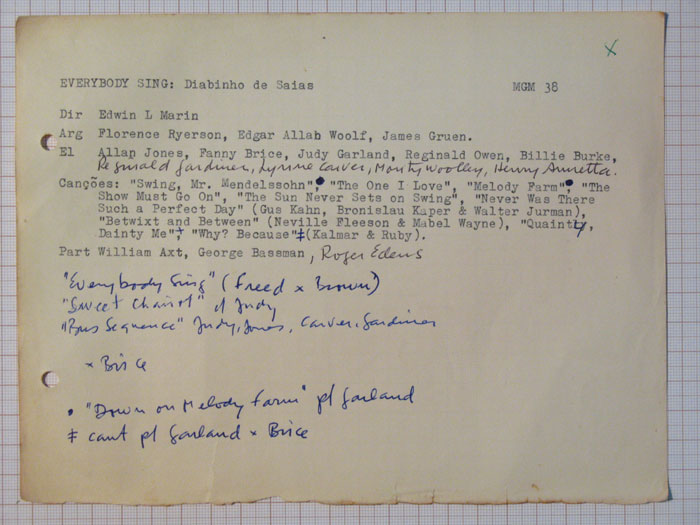 x
EVERYBODY SING: Diabinho de Saias MGM 38
Dir Edwin L Marin
Arg Florence Ryerson, Edgar Allab Woolf, James Gruen.
El Allan Jones, Fanny Brice, Judy Garland, Reginald Owen, Billie Burke,
Reginald Gardiner, Lynne Carver, Monty Woolley, Henry Armetta.
Canções: "Swing, Mr. Mendelssohn", "The One I Love", "Melody Farm", "The
Show Must Go On", "The Sun Never Sets on Swing", "Never Was There
Such a Perfect Day" (Gus Kahn, Bronislau Kaper & Walter Jurman),
"Betwixt and Between" (Neville Fleeson & Mabel Wayne), "Quainty,
Dainty Me", "Why? Because"‡(Kalmar & Ruby).
Part William Axt, George Bassman, Roger Edens
"Everybody Sing" (Freed x Brown)
"Sweet Chariot" d Judy
"Bus Sequence" Judy, Jones, Carver, Gardiner
x Brice
• "Down on Melody Farm" p/ Garland
‡ cant p/ Garland x Brice